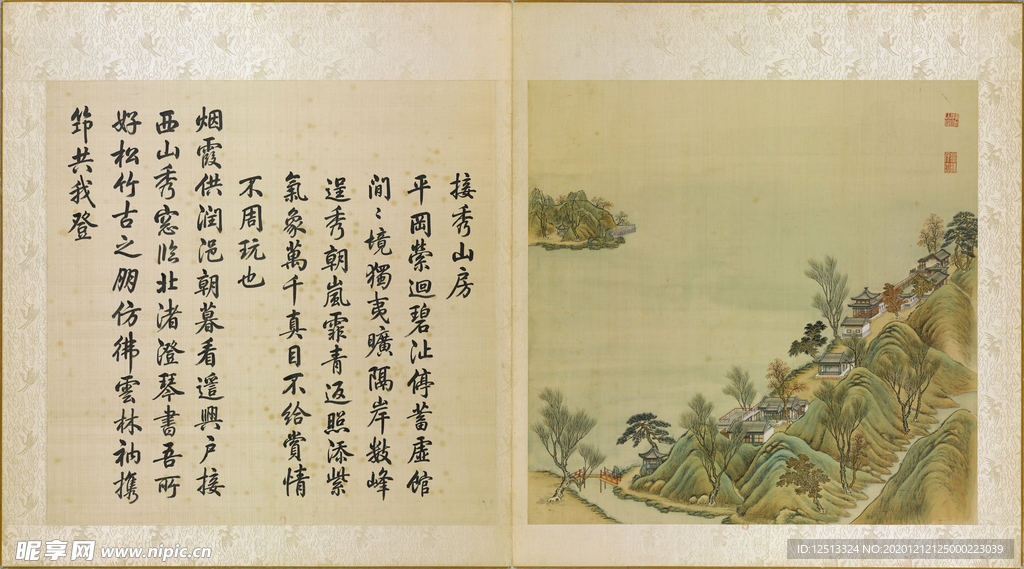 接秀山房
平岡縈迴碧沚停蓄虛館
間間境獨夷曠隔岸數峰
逞秀朝嵐霏青返照添紫
氣象萬千真目不給賞情
不周玩也
烟霞供潤浥朝暮看遥興户接
西山秀窓臨北渚澄琴書吾所
好松竹古之朋仿彿雲林衲攜
筇共我登
昵享网 www.nipic.cn
ID:12513324 NO:20201212125000223039